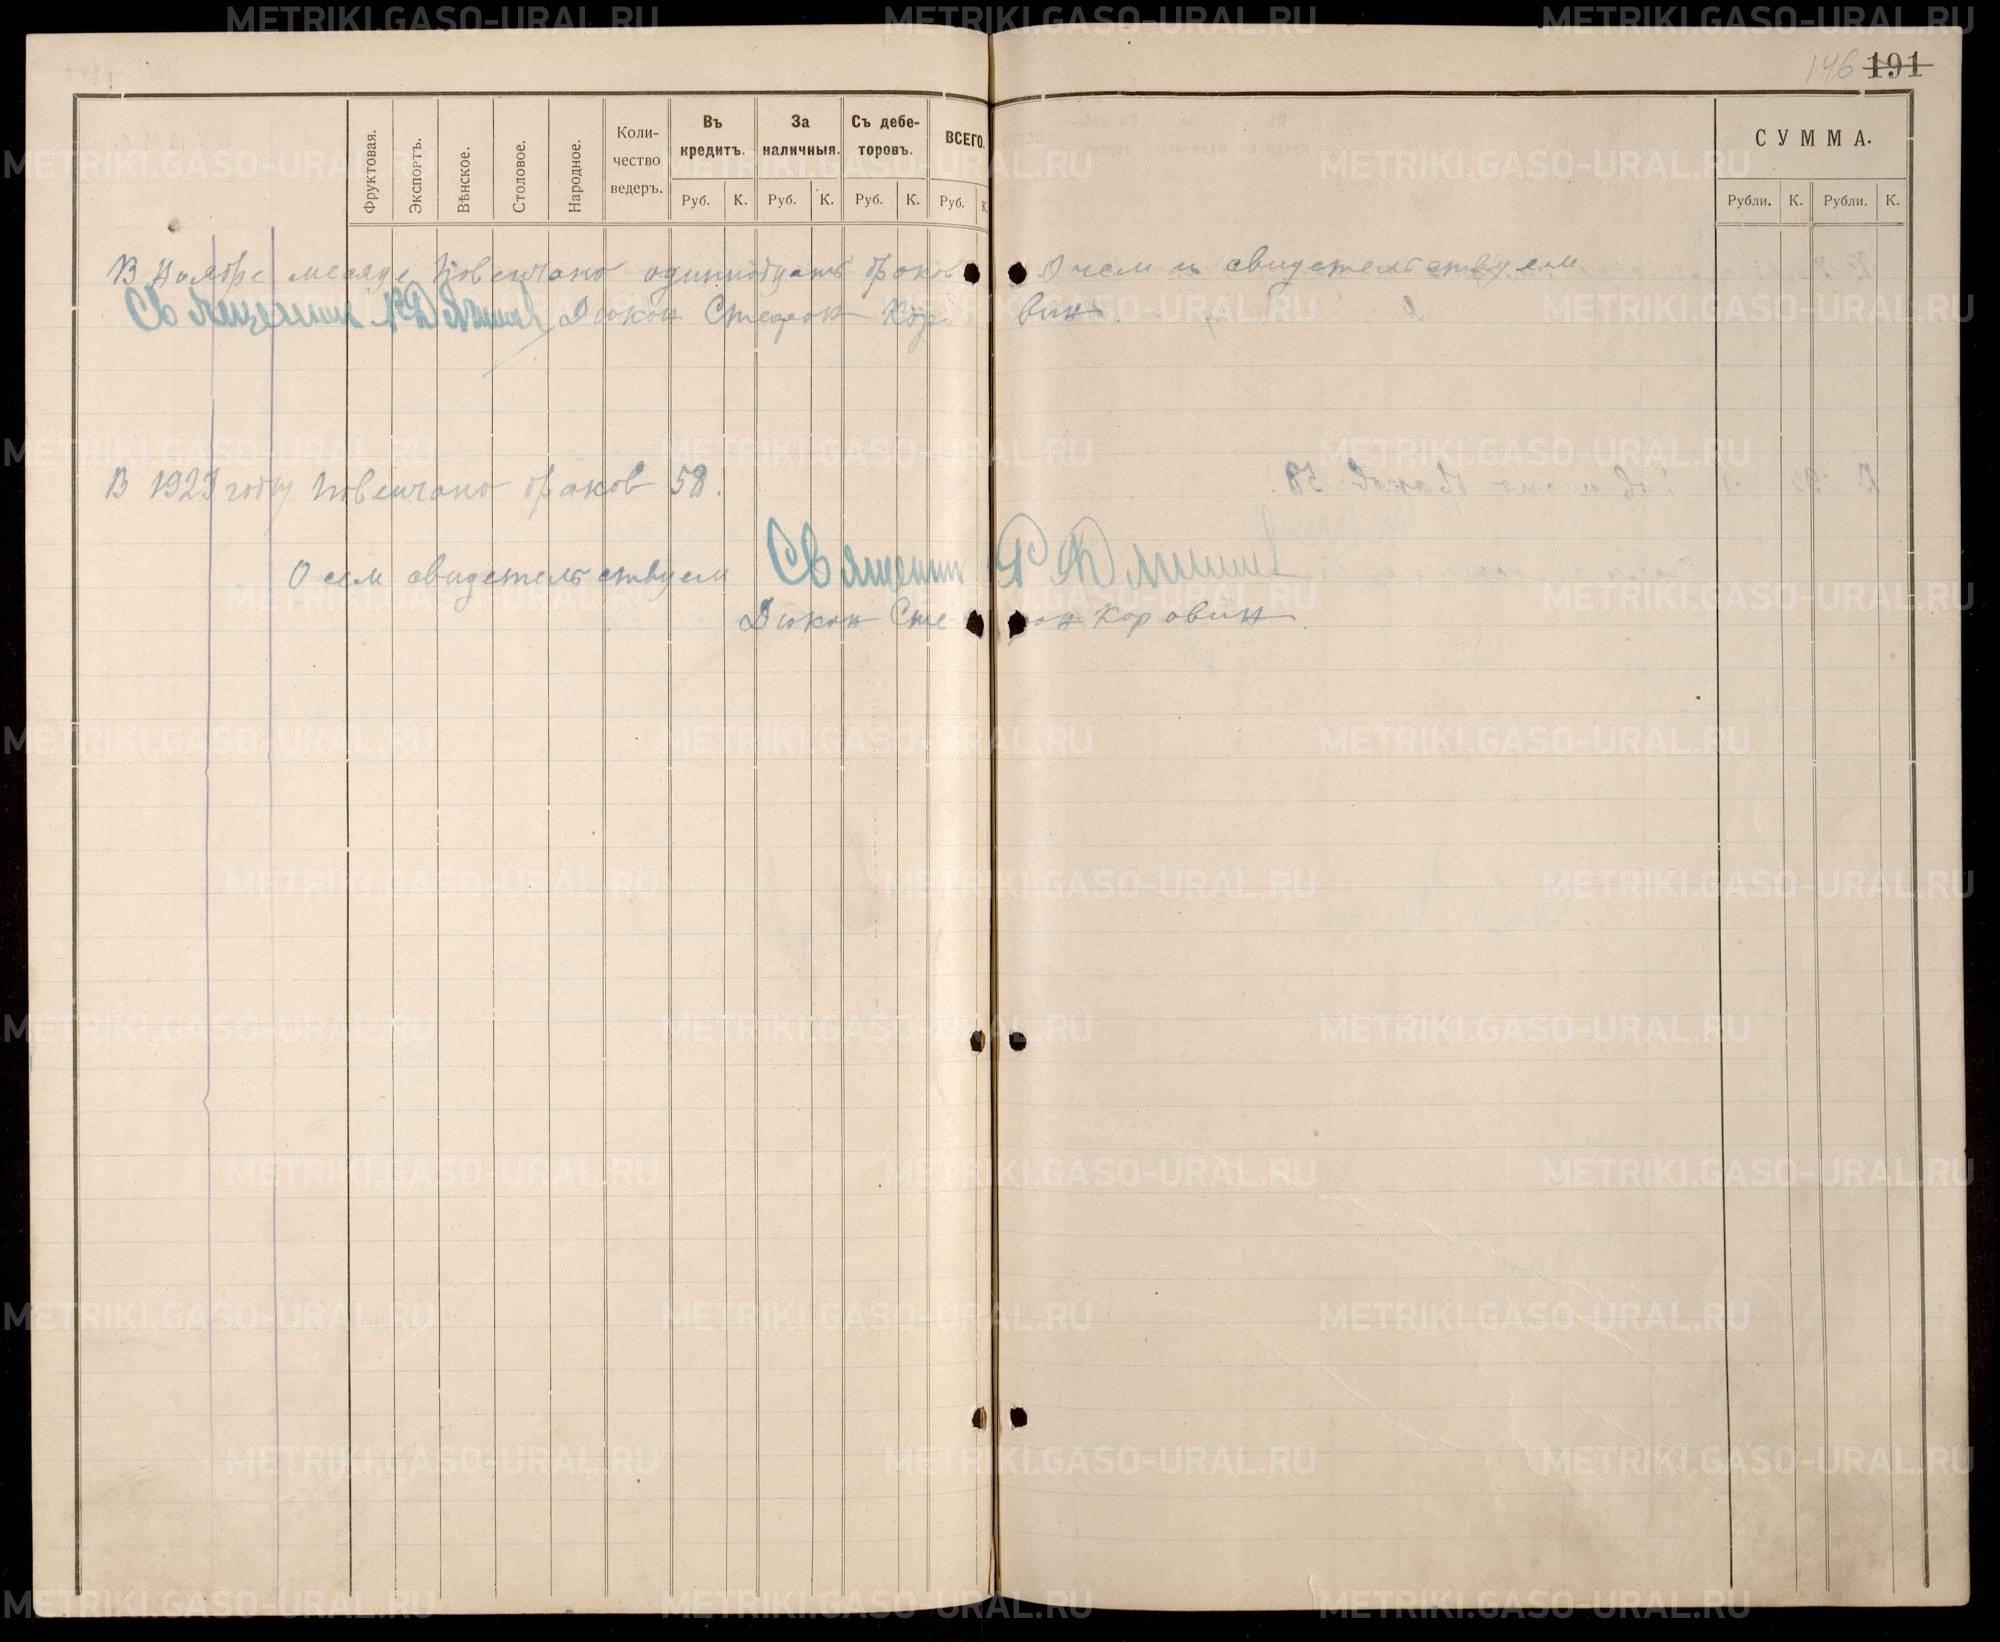 146 191
Фруктовая. Экспортъ. Вѣнское. Столовое. Народное. Коли-чество ведеръ. Въ кредитъ. За наличныя. Съ дебе-торовъ. ВСЕГО.
СУММА.
Руб. К. Руб. К. Руб. К. Руб. К
Рубли. К. Рубли. К.
В Ноябре месяце повенчано одиннадцать браков О чем и свидетельствуем
Священник Диакон Стефан Коровин.
В 1923 году повенчано браков 58.
О сем свидетельствуем Священник
Диакон Стефан Коровин.
METRIKI.GASO-URAL.RU